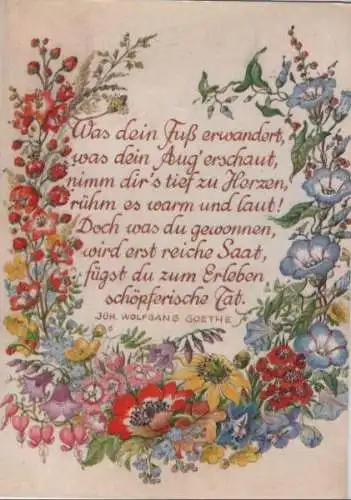 Was dein Fuß erwandert,
was dein Aug' erschaut,
nimm dir's tief zu Herzen,
rühm es warm und laut!
Doch was du gewonnen,
wird erst reiche Saat,
fügst du zum Erleben
schöpferische Tat.
JOH. WOLFGANG GOETHE